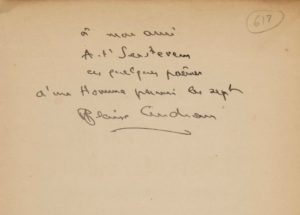 617
à mon ami
A. t' Serstevens
ces quelques poèmes
d'un Homme parmi les sept
Blaise Cendrars